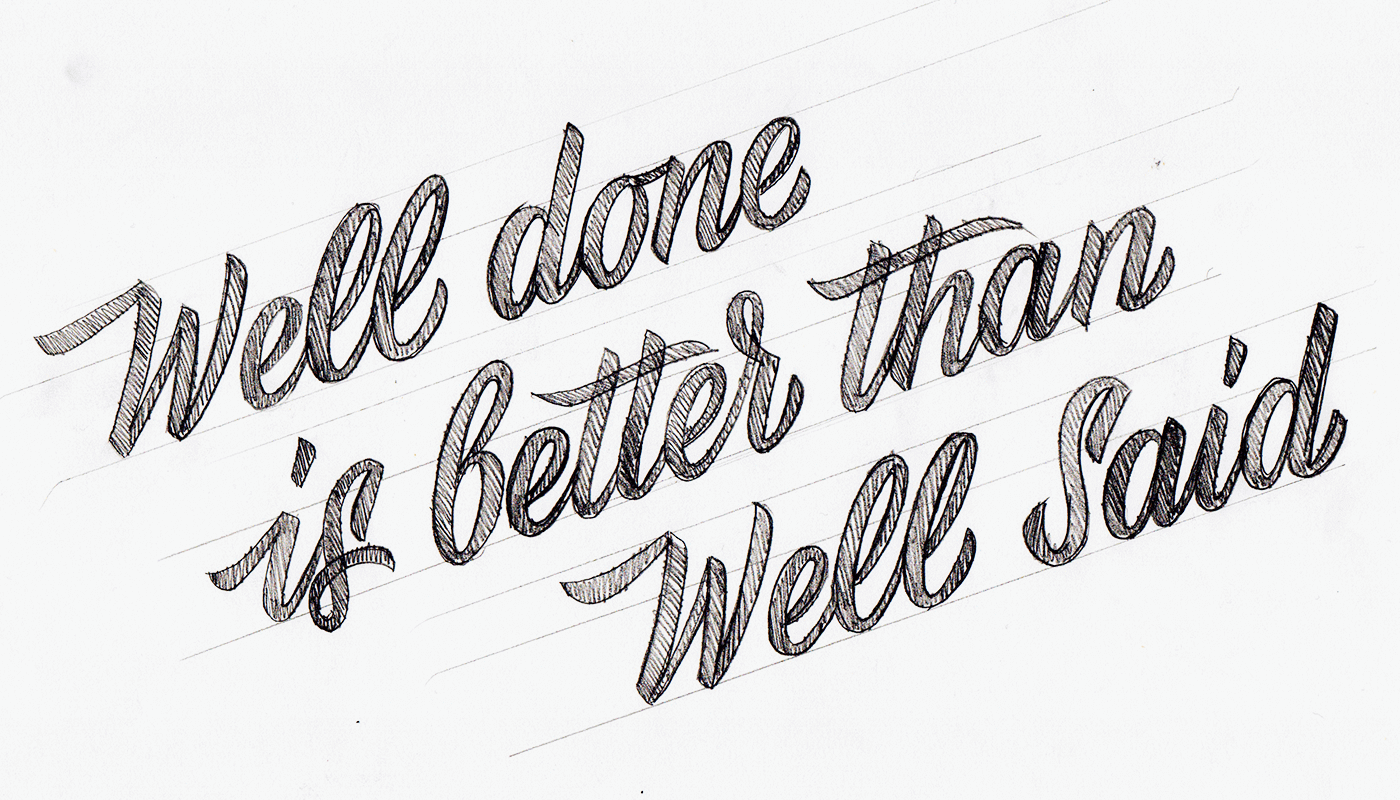 Well done
is better than
Well Said